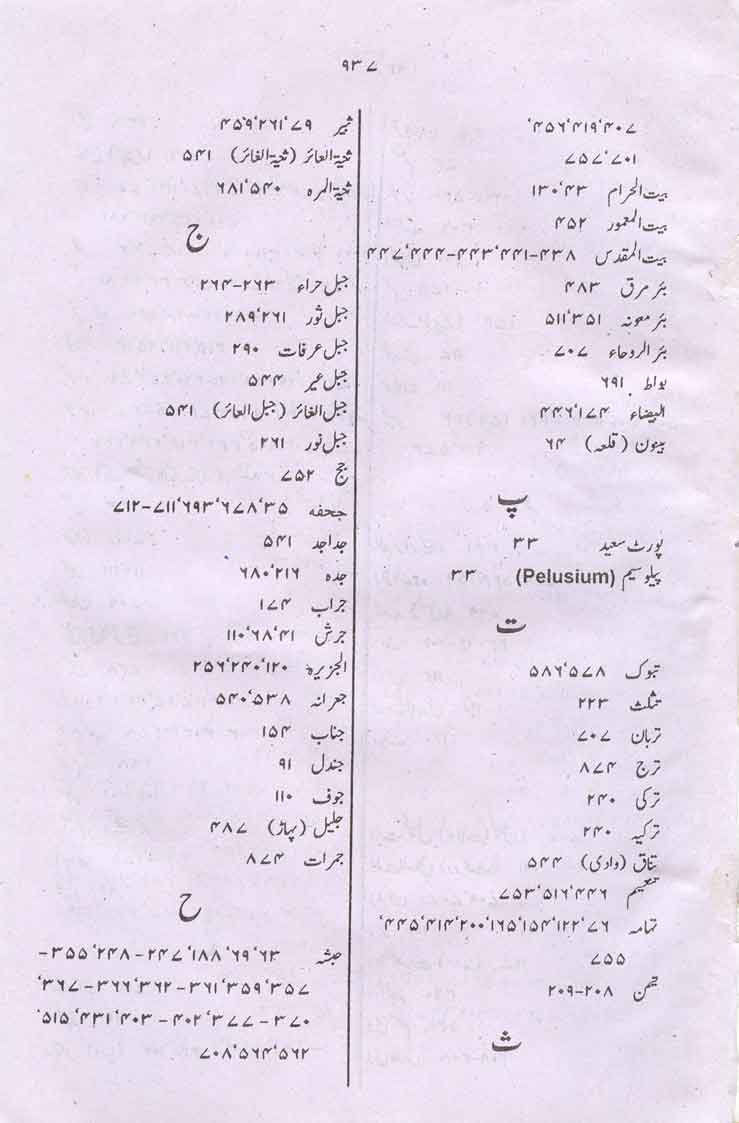 ۹۳۷
۴۰۷‘۴۱۹‘۴۵۶‘
۷۰۱‘۷۵۷
بیت الحرام ۴۳‘۱۳۰
بیت المعمور ۴۵۲
بیت المقدس ۴۳۸-۴۴۱‘۴۴۳-۴۴۴‘۴۴۷
بئر مرق ۴۸۳
بئر معونہ ۳۵۱‘۵۱۱
بئر الروحاء ۷۰۷
بواط ۶۹۱
البیضاء ۱۷۴‘۴۴۶
بینون (قلعہ) ۶۴
پ
پورٹ سعید ۳۳
پیلوسیم (Pelusium) ۳۳
ت
تبوک ۵۷۸‘۵۸۶
تثلث ۲۲۳
تربان ۷۰۷
ترج ۸۷۴
ترکی ۲۴۰
ترکیہ ۲۴۰
تناق (وادی) ۵۴۴
تنعیم ۴۴۶‘۵۱۶‘۷۵۳
تہامہ ۷۶‘۱۲۲‘۱۵۴‘۱۶۵‘۲۰۰‘۴۱۴‘۴۴۵‘
۷۵۵
تیمن ۲۰۸-۲۰۹
ث
ثبیر ۷۹‘۲۶۱‘۴۵۹
ثنیۃ العائر (ثنیۃ الغائر) ۵۴۱
ثنیۃ المرہ ۵۴۰‘۶۸۱
ج
جبل حراء ۲۶۳-۲۶۴
جبل ثور ۲۶۱‘۲۸۹
جبل عرفات ۲۹۰
جبل عیر ۵۴۴
جبل الغائر (جبل العائر) ۵۴۱
جبل نور ۲۶۱
جج ۷۵۲
جحفہ ۳۵‘۶۷۸‘۶۹۳‘۷۱۱-۷۱۲
جداجد ۵۴۱
جدہ ۲۱۶‘۶۸۰
جراب ۱۷۴
جرش ۴۱‘۶۸‘۱۱۰
الجزیرہ ۱۲۰‘۲۴۰‘۲۵۶
جعرانہ ۵۳۸‘۵۴۰
جناب ۱۵۴
جندل ۹۱
جوف ۱۱۰
جلیل (پہاڑ) ۴۸۷
جمرات ۸۷۴
ح
حبشہ ۶۳‘۶۹‘۱۸۸‘۲۴۷-۲۴۸‘۳۵۵-
۳۵۷‘۳۵۹‘۳۶۱-۳۶۲‘۳۶۶-۳۶۷‘
۳۷۰-۳۷۷‘۴۰۲-۴۰۳‘۴۳۱‘۵۱۵‘
۵۶۲‘۵۶۴‘۷۰۸